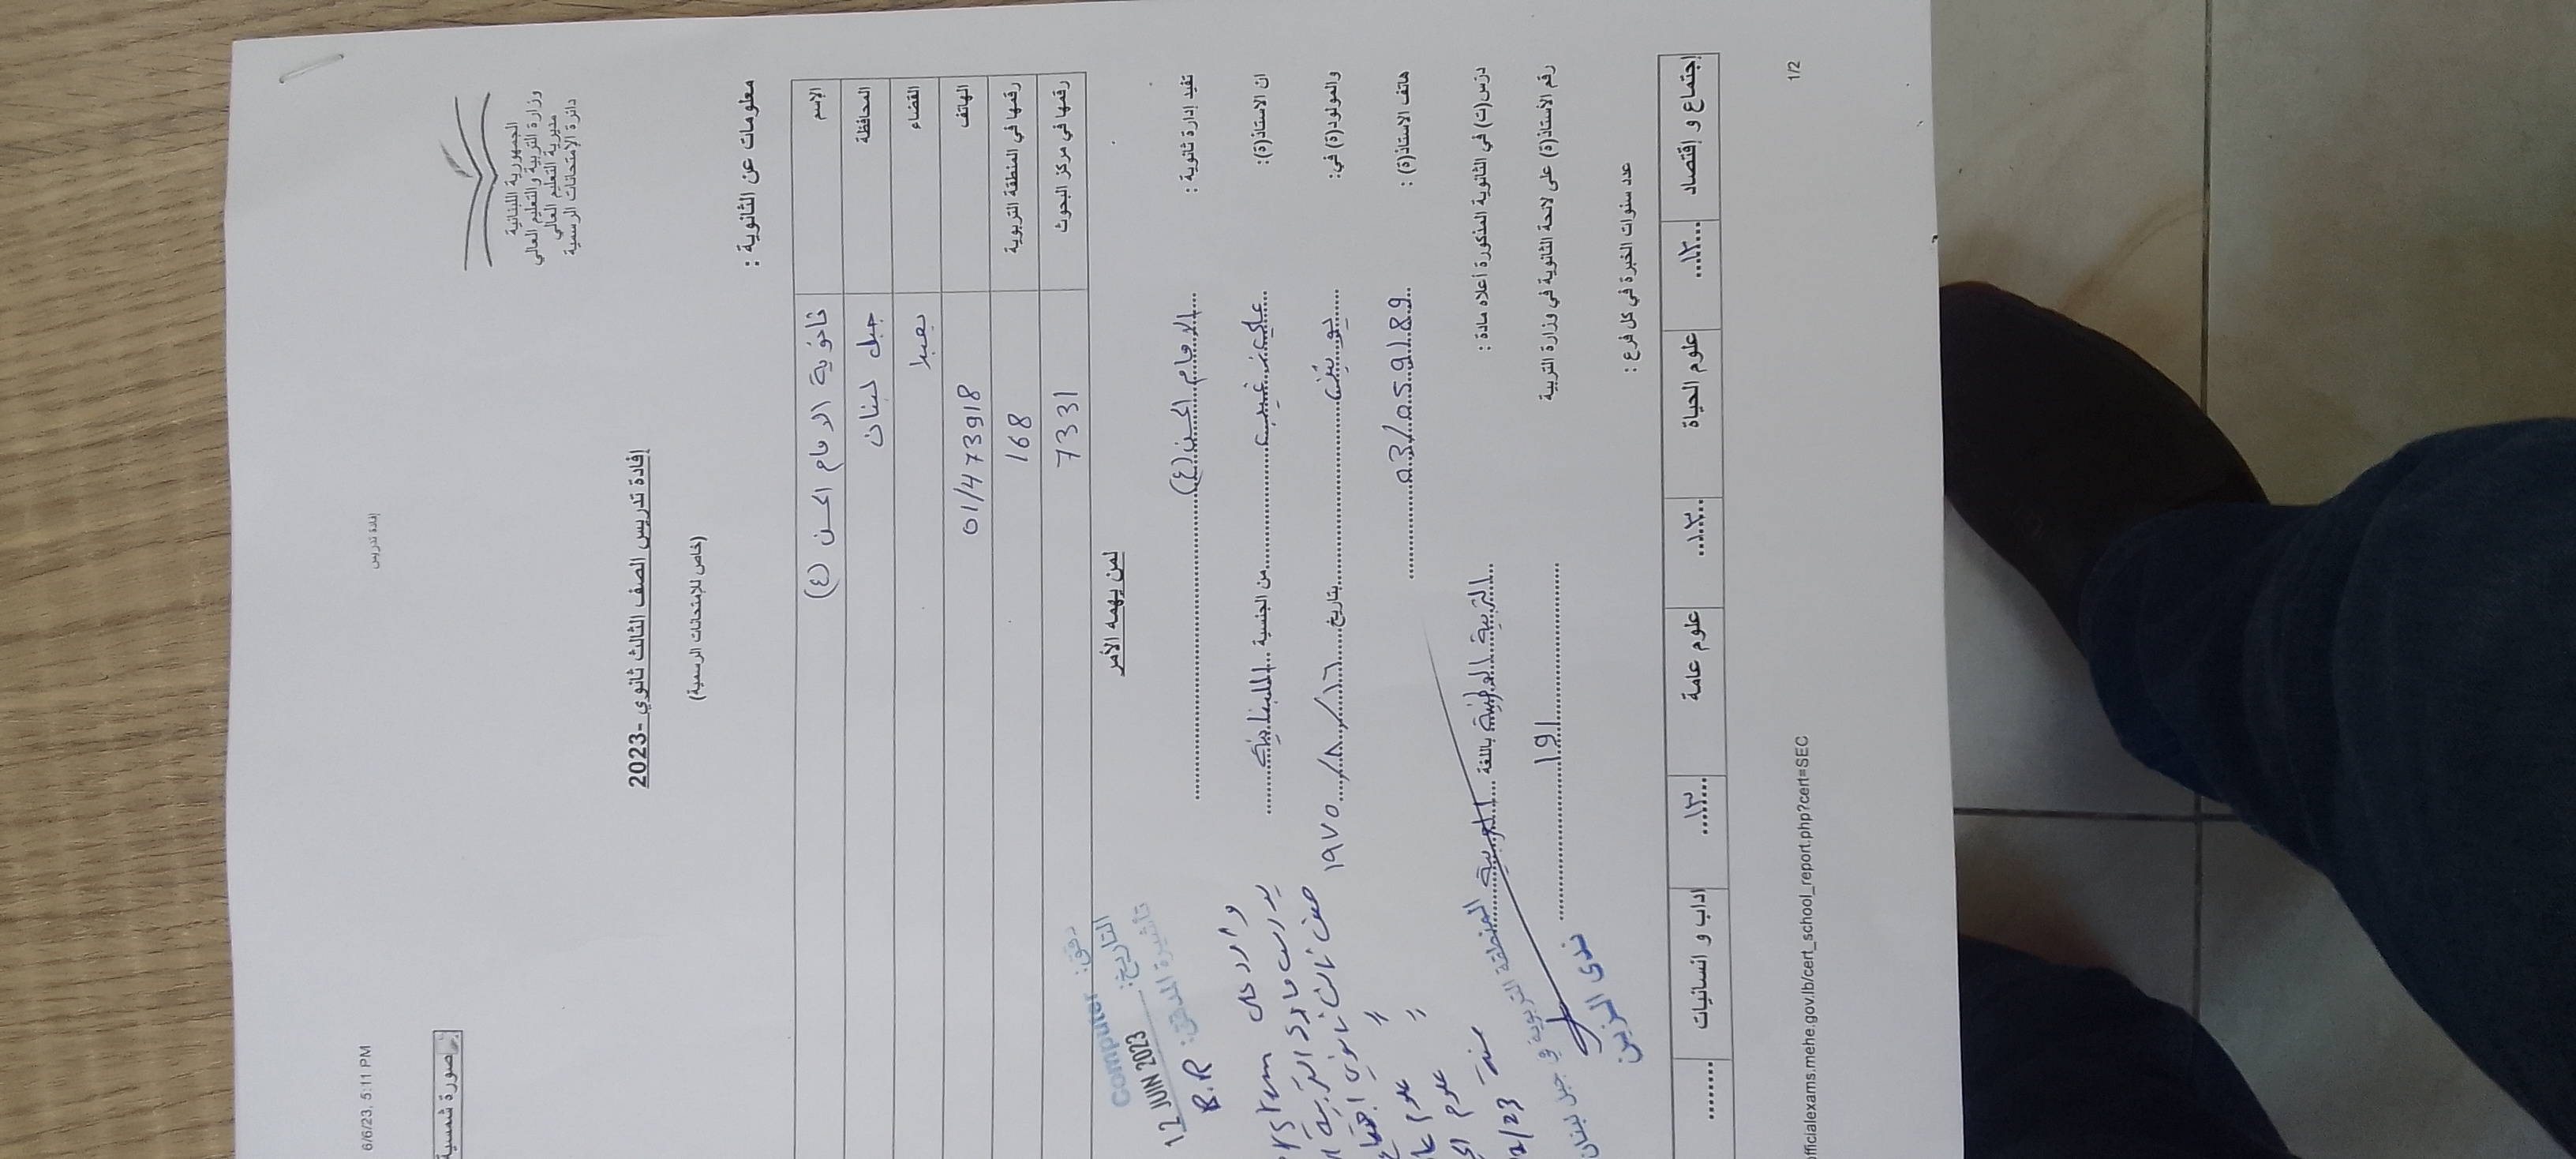 6/6/23, 5:11 PM
إفادة تدريس
صورة شمسية
الجمهورية اللبنانية
وزارة التربية والتعليم العالي
مديرية التعليم العالي
دائرة الإمتحانات الرسمية
إفادة تدريس الصف الثالث ثانوي -2023
(خاص للإمتحانات الرسمية)
معلومات عن الثانوية :
الإسم ثانوية الامام الحسن (ع)
المحافظة جبل لبنان
القضاء بعبدا
الهاتف 01/473918
رقمها في المنطقة التربوية 168
رقمها في مركز البحوث 7331
لمن يهمه الأمر
تفيد إدارة ثانوية : الامام الحسن (ع)
ان الاستاذ(ة): علي غيث من الجنسية اللبنانية
والمولود(ة) في: يونين بتاريخ ١٦/٨/١٩٧٥
هاتف الاستاذ(ة) : 03/059189
درّس(ت) في الثانوية المذكورة أعلاه مادة : التربية الوطنية باللغة العربية
رقم الأستاذ(ة) على لائحة الثانوية في وزارة التربية ١٩١
عدد سنوات الخبرة في كل فرع :
إجتماع و إقتصاد ١٣ علوم الحياة ١٣ علوم عامة ١٣ اداب و انسانيات
Computer دقق:
12 JUIN 2023 التاريخ:
تأشيرة المدقق:
B.R
وارد على
يدرس مادة التربية
صف ثالث ثانوي
علوم
علوم
سنة
المنطقة التربوية في جبل لبنان
ندى الزين
officialexams.mehe.gov.lb/cert_school_report.php?cert=SEC
1/2